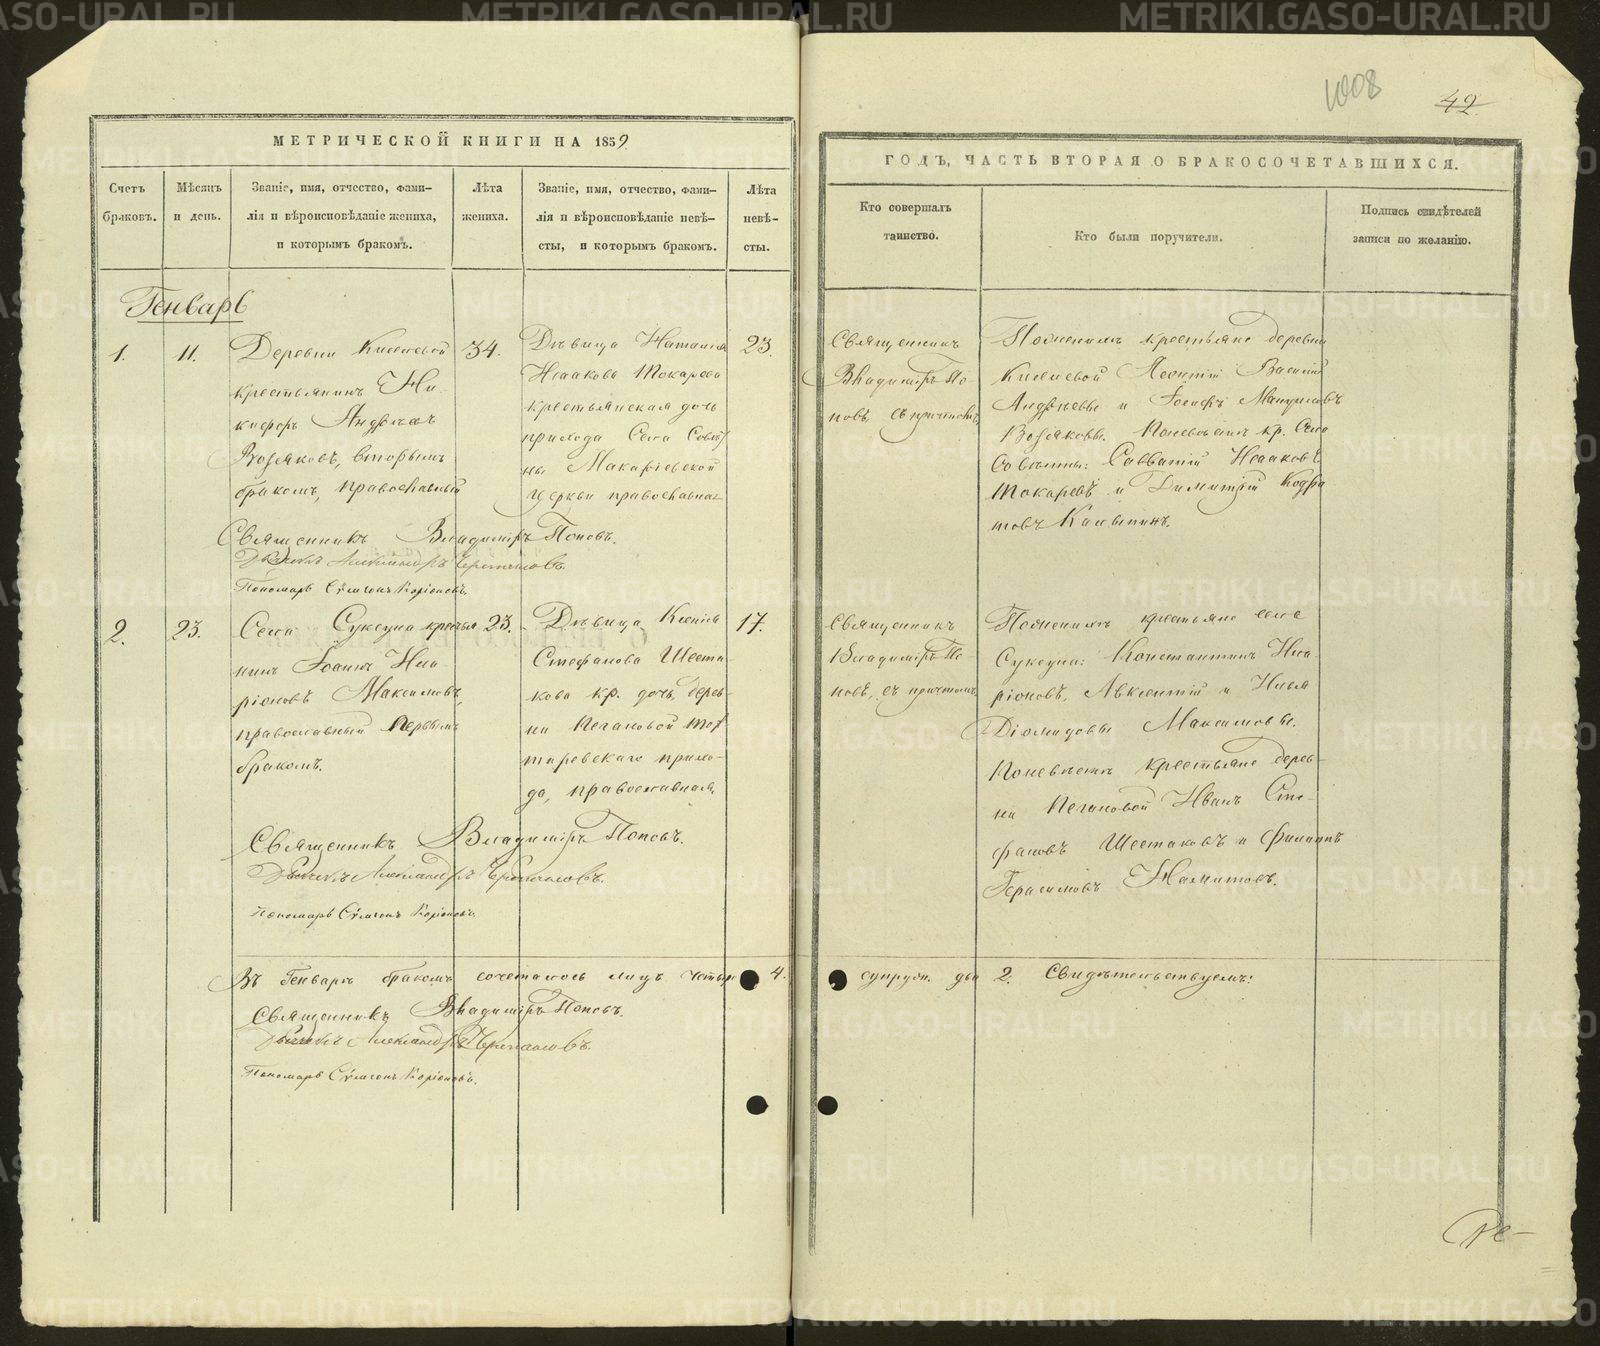 1008
42
МЕТРИЧЕСКОЙ КНИГИ НА 1859
ГОДЪ, ЧАСТЬ ВТОРАЯ О БРАКОСОЧЕТАВШИХСЯ.
Счетъ
браковъ.
Мѣсяцъ
и день.
Званіе, имя, отчество, фами-
лія и вѣроисповѣданіе жениха,
и которымъ бракомъ.
Лѣта
жениха.
Званіе, имя, отчество, фами-
лія и вѣроисповѣданіе невѣ-
сты, и которымъ бракомъ.
Лѣта
невѣ-
сты.
Кто совершалъ
таинство.
Кто были поручители.
Подпись свидѣтелей
записи по желанію.
Генварь
1.
11.
Деревни
крестьянинъ Ни-
кифоръ Андреевъ
Возяковъ, вторымъ
бракомъ, православный
34.
Дѣвица Наталия
Исаакова Токарева
крестьянская дочь
прихода Села Совѣт
ны Макарьевской
церкви православная
23.
Священникъ
Владимиръ По-
повъ, съ причтомъ
По женихѣ крестьяне деревни
Василій
Андреевы и Іосифъ
Возяковы. По невѣстѣ кр. Села
Совѣтны: Савватій Исааковъ
Токаревъ и Димитрій Кодра
товъ
Священникъ Владимиръ Поповъ.
Дьячекъ Александръ
Пономарь Сѵмеонъ Коріоновъ.
2.
23.
Села Суксуна крестья
нинъ Іоаннъ Ила-
ріоновъ Максимовъ,
православный первымъ
бракомъ.
23.
Дѣвица Ксенія
Стефанова Шеста-
кова кр. дочь, дерев-
ни Пегановой Тох
таревскаго прихо-
да, православная.
17.
Священникъ
Владимиръ По-
повъ, съ причтомъ
По женихѣ крестьяне села
Суксуна: Константинъ Ила-
ріоновъ, Авксентій и Илья
Діомидовы Максимовы.
По невѣстѣ крестьяне дерев-
ни Пегановой Иванъ Сте-
фановъ Шестаковъ и Филиппъ
Герасимовъ
Священникъ Владимиръ Поповъ.
Дьячекъ Александръ
Пономарь Сѵмеонъ Коріоновъ.
Въ Генварѣ бракомъ сочеталось лицъ четыре 4. супруж. два 2. Свидѣтельствуемъ:
Священникъ Владимиръ Поповъ.
Дьячекъ Александръ
Пономарь Сѵмеонъ Коріоновъ.
METRIKI.GASO-URAL.RU